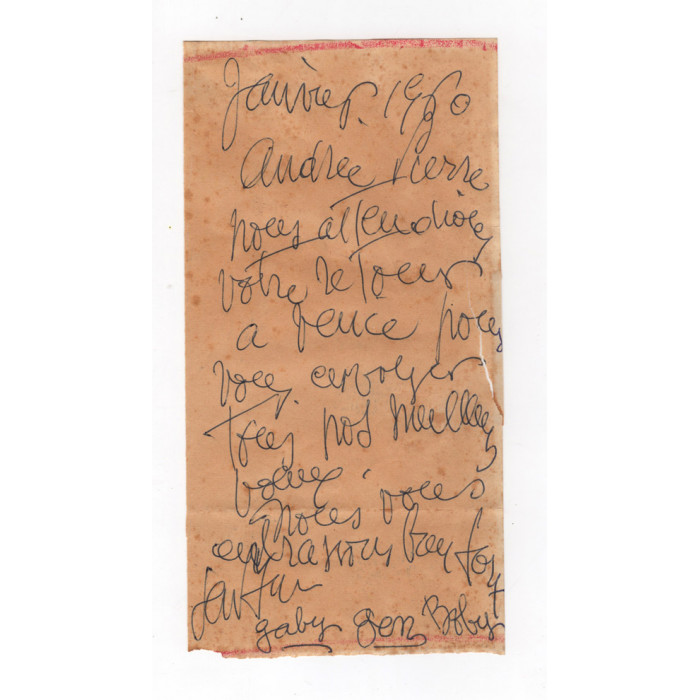 Janvier. 1950
Andree Pierre
nous attendions
votre retour
a Vence pour
vous envoyer
tous nos meilleurs
voeux.
nous vous
embrassons bien fort
gaby Boby